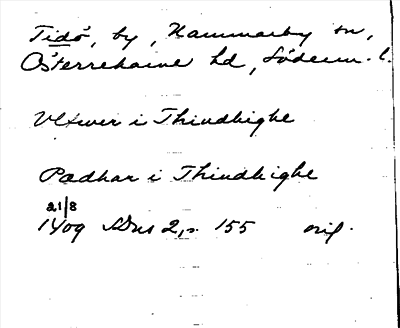 Tidö, by, Hammarby sn,
Österrekarne hd, Söderm. l.
Vlfwer i Thindhighe
Padhar i Thindhighe
21/8
1409 SDns 2, s. 155 orig.